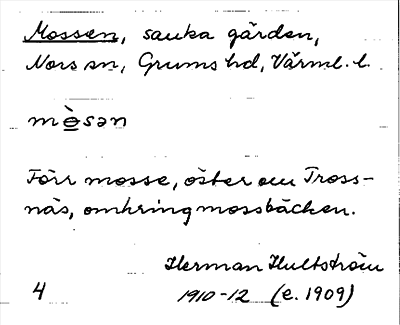 Mossen, sanka gärden,
Nors sn, Grums hd, Värml. l.
mò̲̲sən
Förr mosse, öster om Tross-
näs, omkring mossbäcken.
Herman Hultström
4 1910-12 (e. 1909)